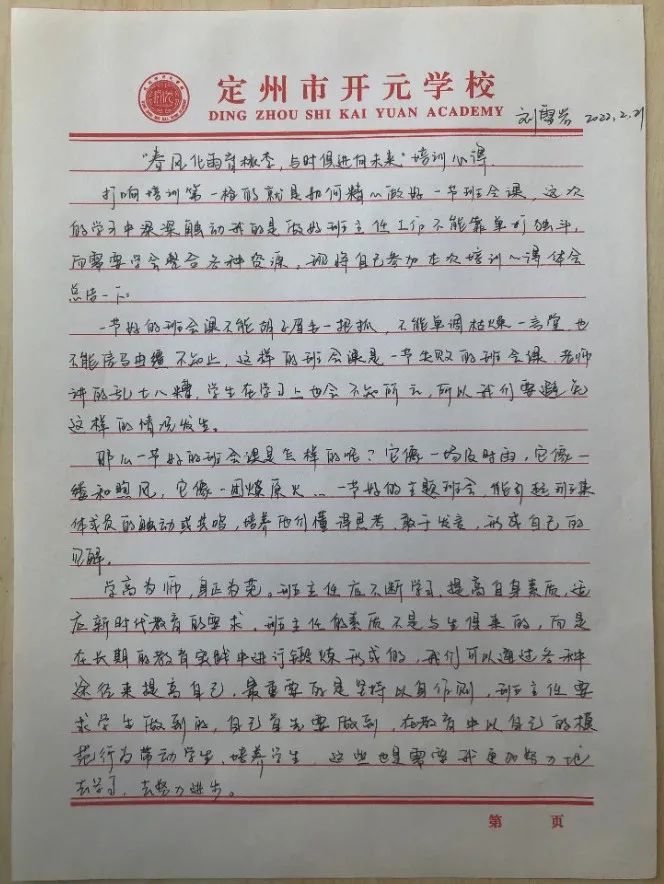 定州市开元学校
DING ZHOU SHI KAI YUAN ACADEMY
刘雪岩 2022.2.21
"春风化雨育桃李,与时俱进向未来"培训心得
打响培训第一枪的就是如何精心做好一节班会课,这次
的学习中深深触动我的是做好班主任工作不能靠单打独斗,
而需要学会整合各种资源,现将自己参加本次培训心得体会
总结一下:
一节好的班会课不能胡子眉毛一把抓,不能单调枯燥一言堂,也
不能信马由缰不知止,这样的班会课是一节失败的班会课,老师
讲的乱七八糟,学生在学习上也会不知所云,所以我们要避免
这样的情况发生。
那么一节好的班会课是怎样的呢?它像一场及时雨,它像一
缕和煦风,它像一团燎原火...一节好的主题班会,能引起班集
体成员的触动或共鸣,培养他们懂得思考、敢于发言,形成自己的
见解。
学高为师,身正为范。班主任应不断学习,提高自身素质,适
应新时代教育的要求,班主任的素质不是与生俱来的,而是
在长期的教育实践中进行锻炼形成的,我们可以通过各种
途径来提高自己,最重要的是坚持以身作则,班主任要
求学生做到的,自己首先要做到,在教育中以自己的模
范行为带动学生,培养学生,这些也是需要我更加努力地
去学习,去努力进步。
第 页